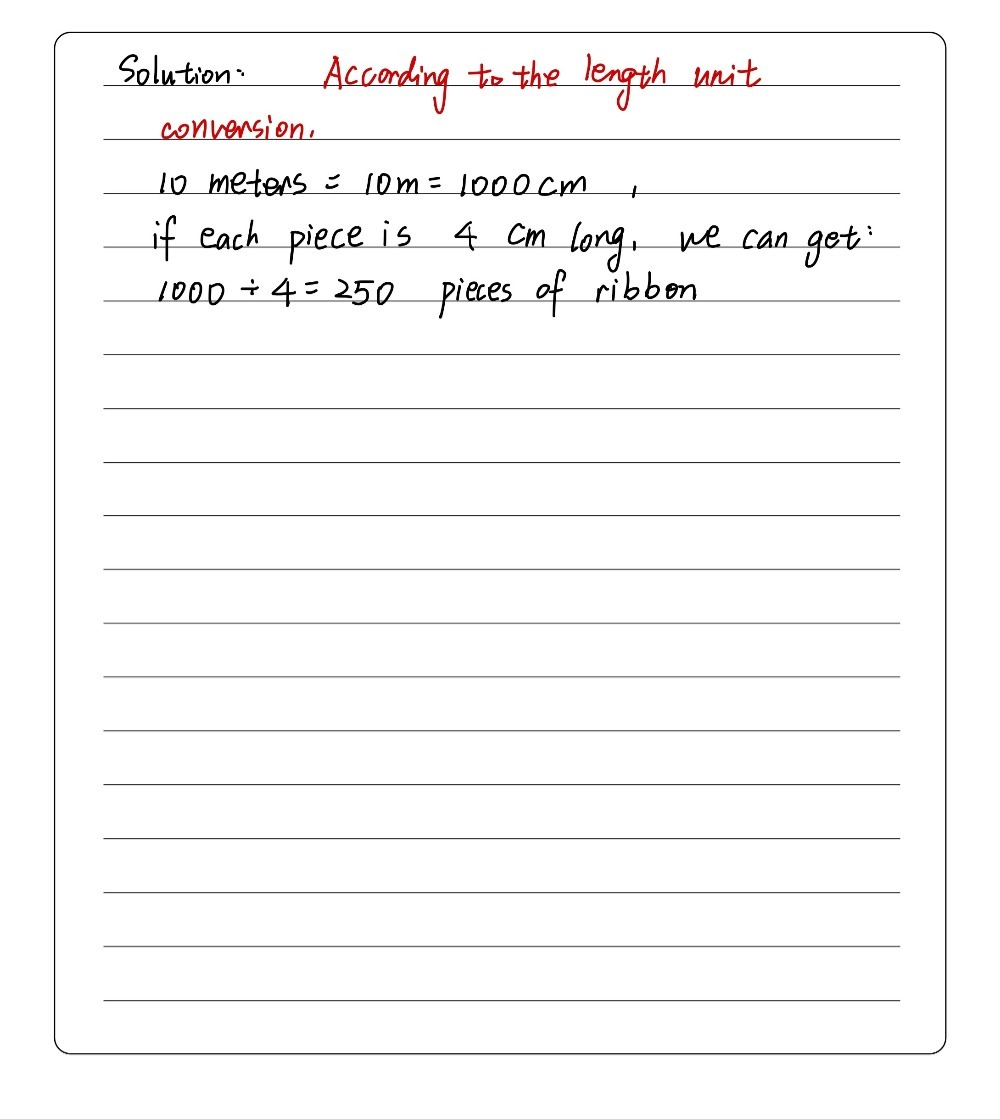 Solution: According to the length unit
conversion,
10 meters = 10m = 1000cm ,
if each piece is 4 cm long, we can get:
1000 ÷ 4 = 250 pieces of ribbon